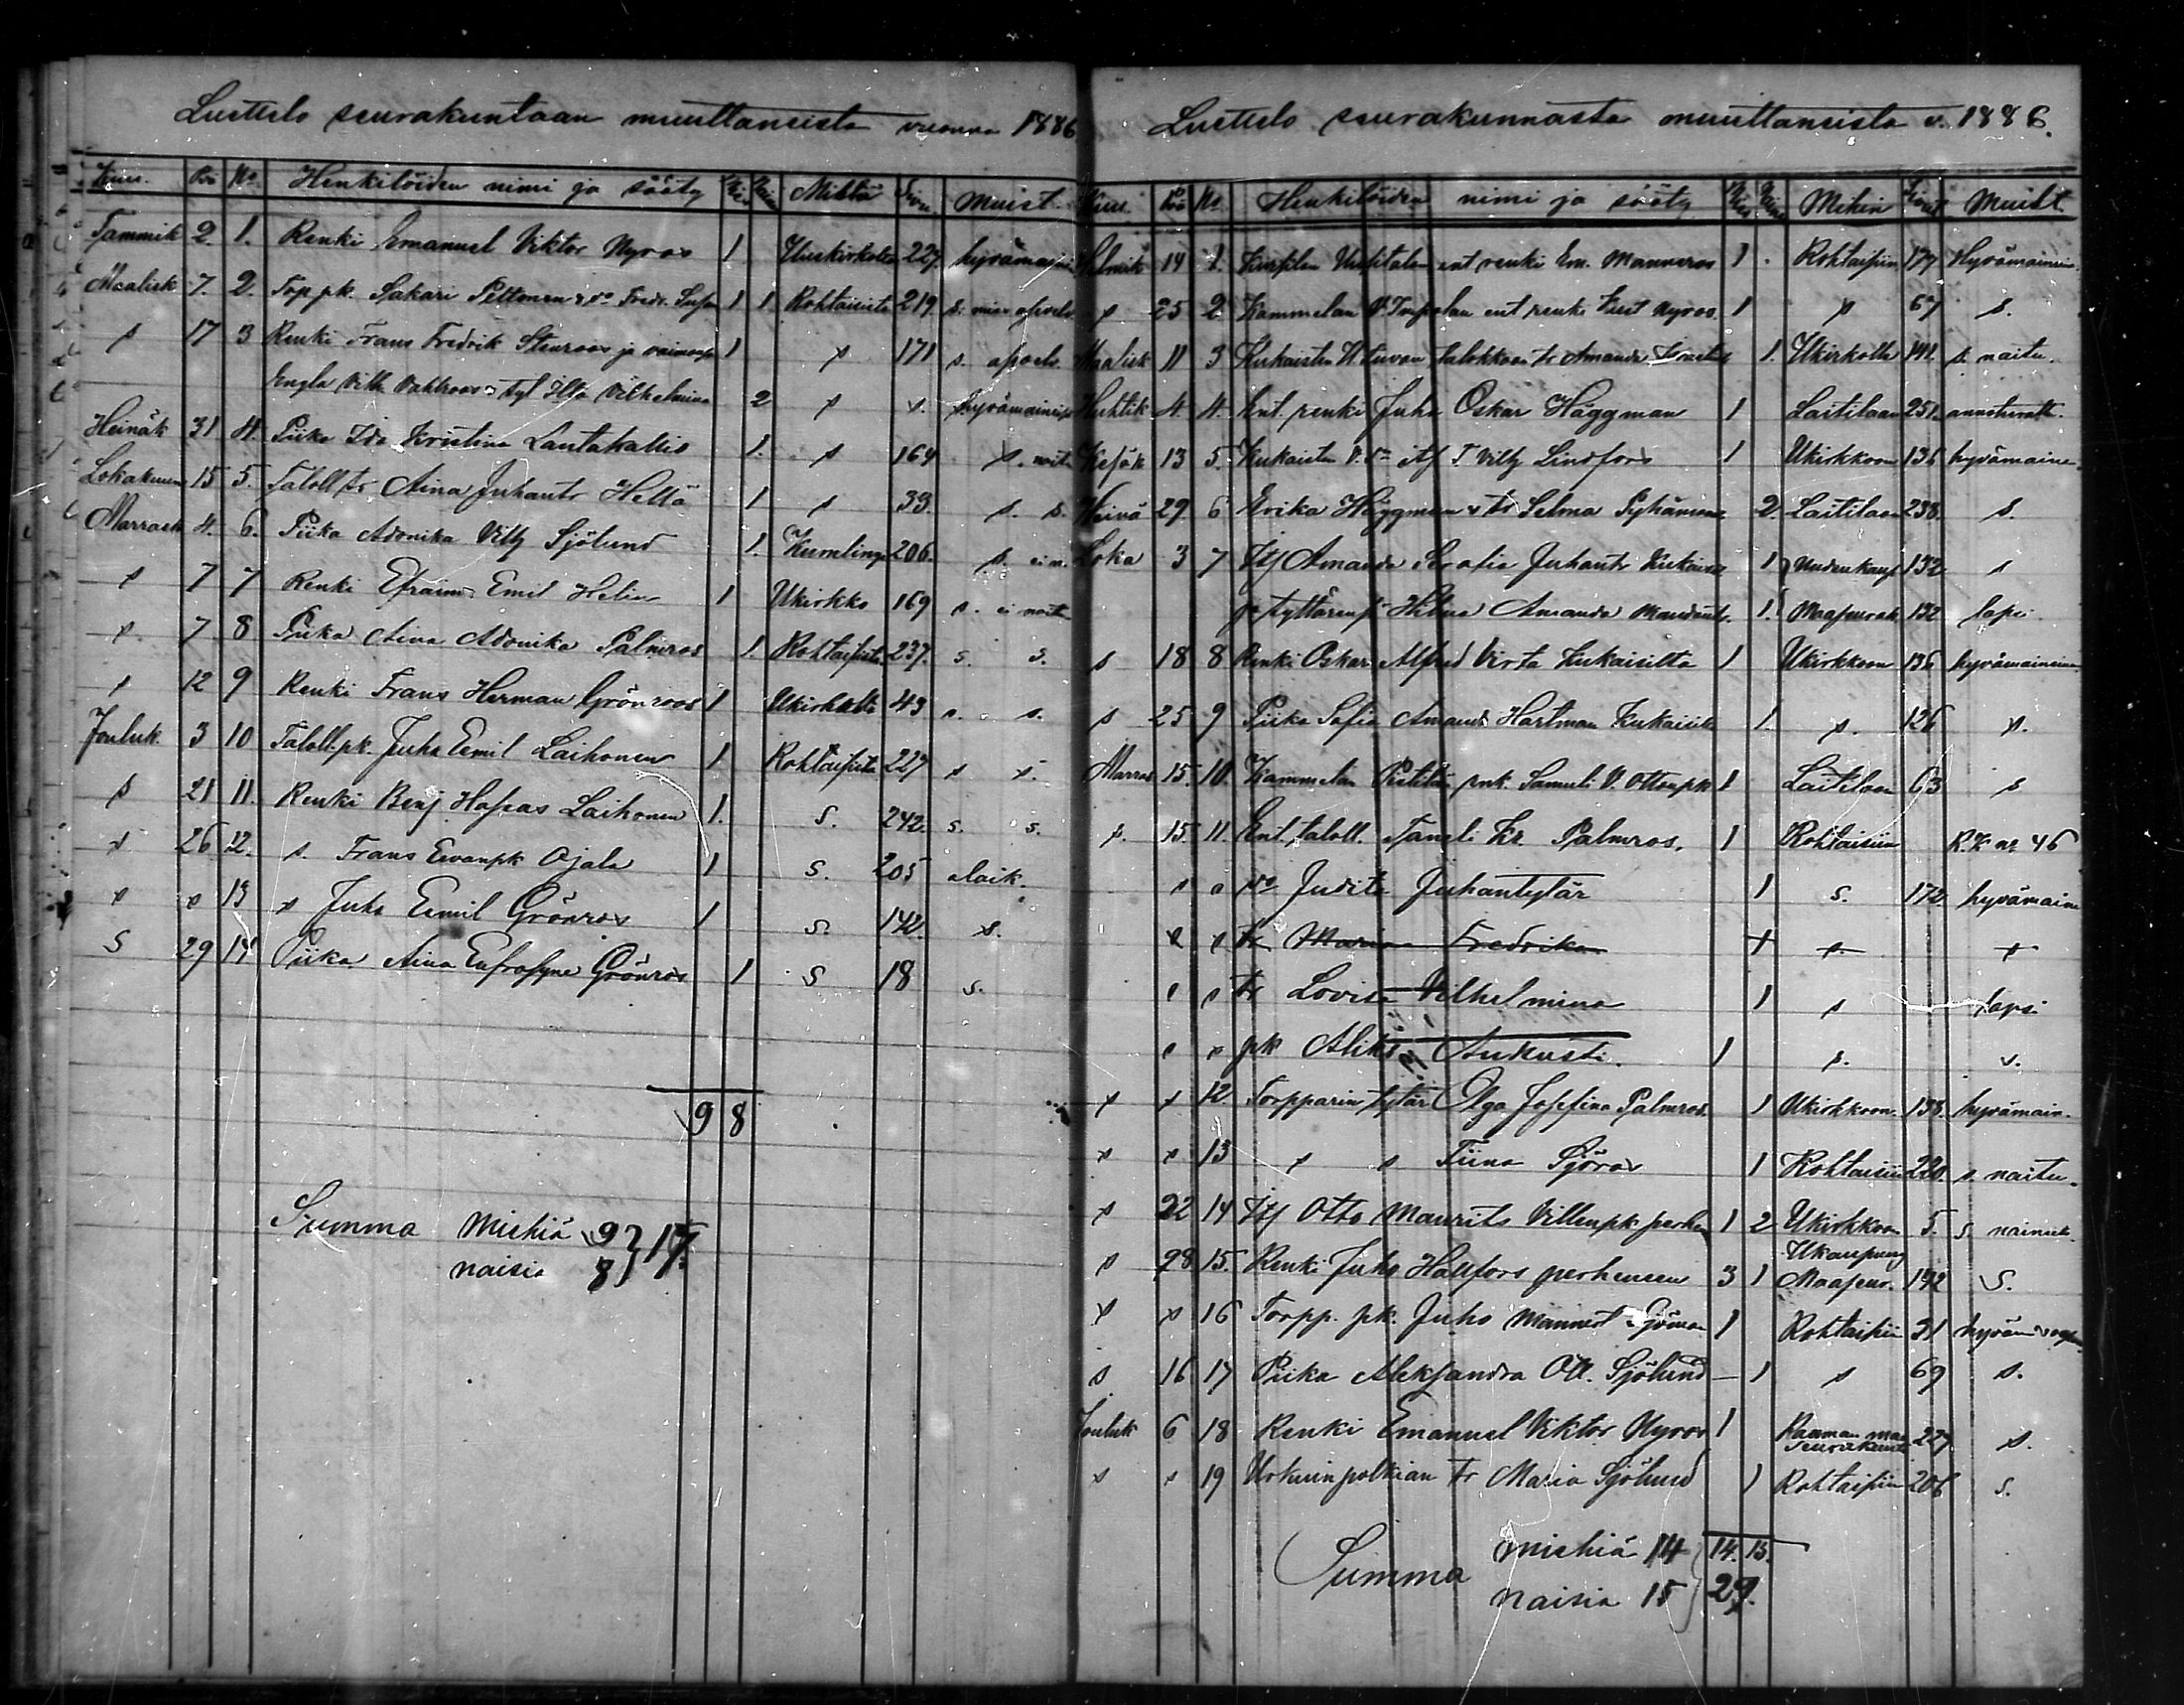 Luettelo seurakuntaan muuttaneista vuonna 1886
Kuu. Pvä No Henkilöiden nimi ja sääty Mistä Sivu Muist.
Tammik 2. 1. Renki Emanuel Viktor Nyros 1 Uuskirkolta 227. hyvämaine
Maalisk 7. 2. Torp pk. Sakari Peltonen v. vo Fredr. Sofia 1 1 Rohtaisista 219.
s 17 3 Renki Frans Fredrik Stenroos ja vaimonsa 1 s 171 s.
Engla Vilh Vahlroos tyt Ilta Vilhelmina 2 s s. hyvämaineisia
Heinäk 31 4. Piika Ida Kristina Lautakallio 1. s 164 s.
Lokakuun 15 5. Taloll tr Aina Juhantr Heltä 1 s 33. s. s.
Marrask 4. 6. Piika Adonika Vilh Sjölund 1. Kumlinge 206. s. ei n.
s 7 7 Renki Efraim Emil Helin 1 Ukirkko 169 s. ei naitu
s 7 8 Piika Aina Adonika Palmros 1. Rohtaisista 237. s. s.
s 12 9 Renki Frans Herman Grönroos 1 Ukirkolta 43 s. s.
Jouluk. 3 10 Taloll. pk. Juha Eemil Laihonen 1 Rohtaisista 227 s s.
s 21 11. Renki Benj. Hapas Laihonen 1. S. 242. s. s.
s 26 12. s. Frans Evanpk Ojala 1 S. 205 alaik.
s s 13 s Juho Eemil Grönros 1 S. 142. s.
S 29 14 Piika Aina Eufrosyne Grönros 1 S 18 s.
9 8
Summa Miehiä 9 } 17.
naisia 8
Luettelo seurakunnasta muuttaneista v. 1886.
Kuu. Pvä No Henkilöiden nimi ja sääty Mihin Sivu Muist.
Helmik 14 1. Uusitalon ent renki Em. Manneros 1 Rohtaisiin 177 Hyvämainein.
s 25 2. Kammelan ent renki Kust Nyros. 1 s 67 s.
Maalisk 11 3 Kukaisten talokkaan tr Amanda 1. Ukirkolle 141. s. naitu.
Huhtik 4. 4. Ent. renki Juha Oskar Häggman 1 Laitilaan 251.
Kesäk 13 5. Kukaisten itf T. Vilh Lindfors 1 Ukirkkoon 136 hyvämaine.
Heinä 29. 6 Erika Häggman v tr Selma 2. Laitilaan 238. s.
Loka 3 7 Itf Amanda Serafia Juhantr Kukaisist 1 Uudenkaup 132 s
ja tyttärensä Hilma Amanda 1. Maaseurak 132 lapsi.
s 18 8 Renki Oskar Alfred Virta Kukaisilta 1 Ukirkkoon 136 hyvämaineinen
s 25 9 Piika Sofia Amanda Hartman Kukaisilta 1. s. 126 s.
Marras 15. 10. Kammelan renk. Samuli V. Ottonpk 1 Laitilaan 63 s
s. 15. 11. Ent. taloll. Taneli Kr. Palmros. 1 Rohtaisiin R. K no 46
s s vo Judita Juhantytär 1 s. 172. hyvämaine
s s tr Maria Fredrika 1 s s
s s tr Lovisa Vilhelmina 1 s lapsi
s s pk Aliks Aukusti. 1 s. s.
s s 12 Torpparin tytär Olga Josefina Palmros. 1 Ukirkkoon. 138. hyvämain.
s s 13 s s Tiina Sjöros 1 Rohtaisiin 220. s. naitu.
s 22 14 Itf Otto Maurits Villenpk perhe 1 2 Ukirkkoon 5. s.
s 28 15. Renki Juho Hallfors perheneen 3 1 Ukaupung Maaseur. 192 S.
s s 16 Torpp. pk. Juho Mannert Sjöman 1 Rohtaisiin 31
s 16 17 Piika Aleksandra Ott. Sjölund — 1 s 69 s.
Jouluk 6 18 Renki Emanuel Viktor Nyros 1 Rauman maa seurakunta 227 s.
s s 19 Urkuinpolkian tr Maria Sjölund 1 Rohtaisiin 206 s.
Summa miehiä 14 14. 15.
naisia 15 29.